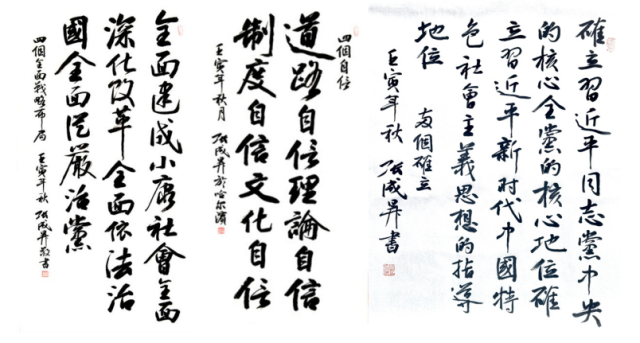 確立習近平同志黨中央
的核心全黨的核心地位確
立習近平新时代中國特
色社會主義思想的指導
地位 两個確立
壬寅年秋 张成昇書
四個自信
道路自信理論自信
制度自信文化自信
壬寅年秋月 张成昇於哈尔濱
全面建成小康社會全面
深化改革全面依法治
國全面從嚴治黨
四個全面戰略布局 壬寅年秋 张成昇敬書